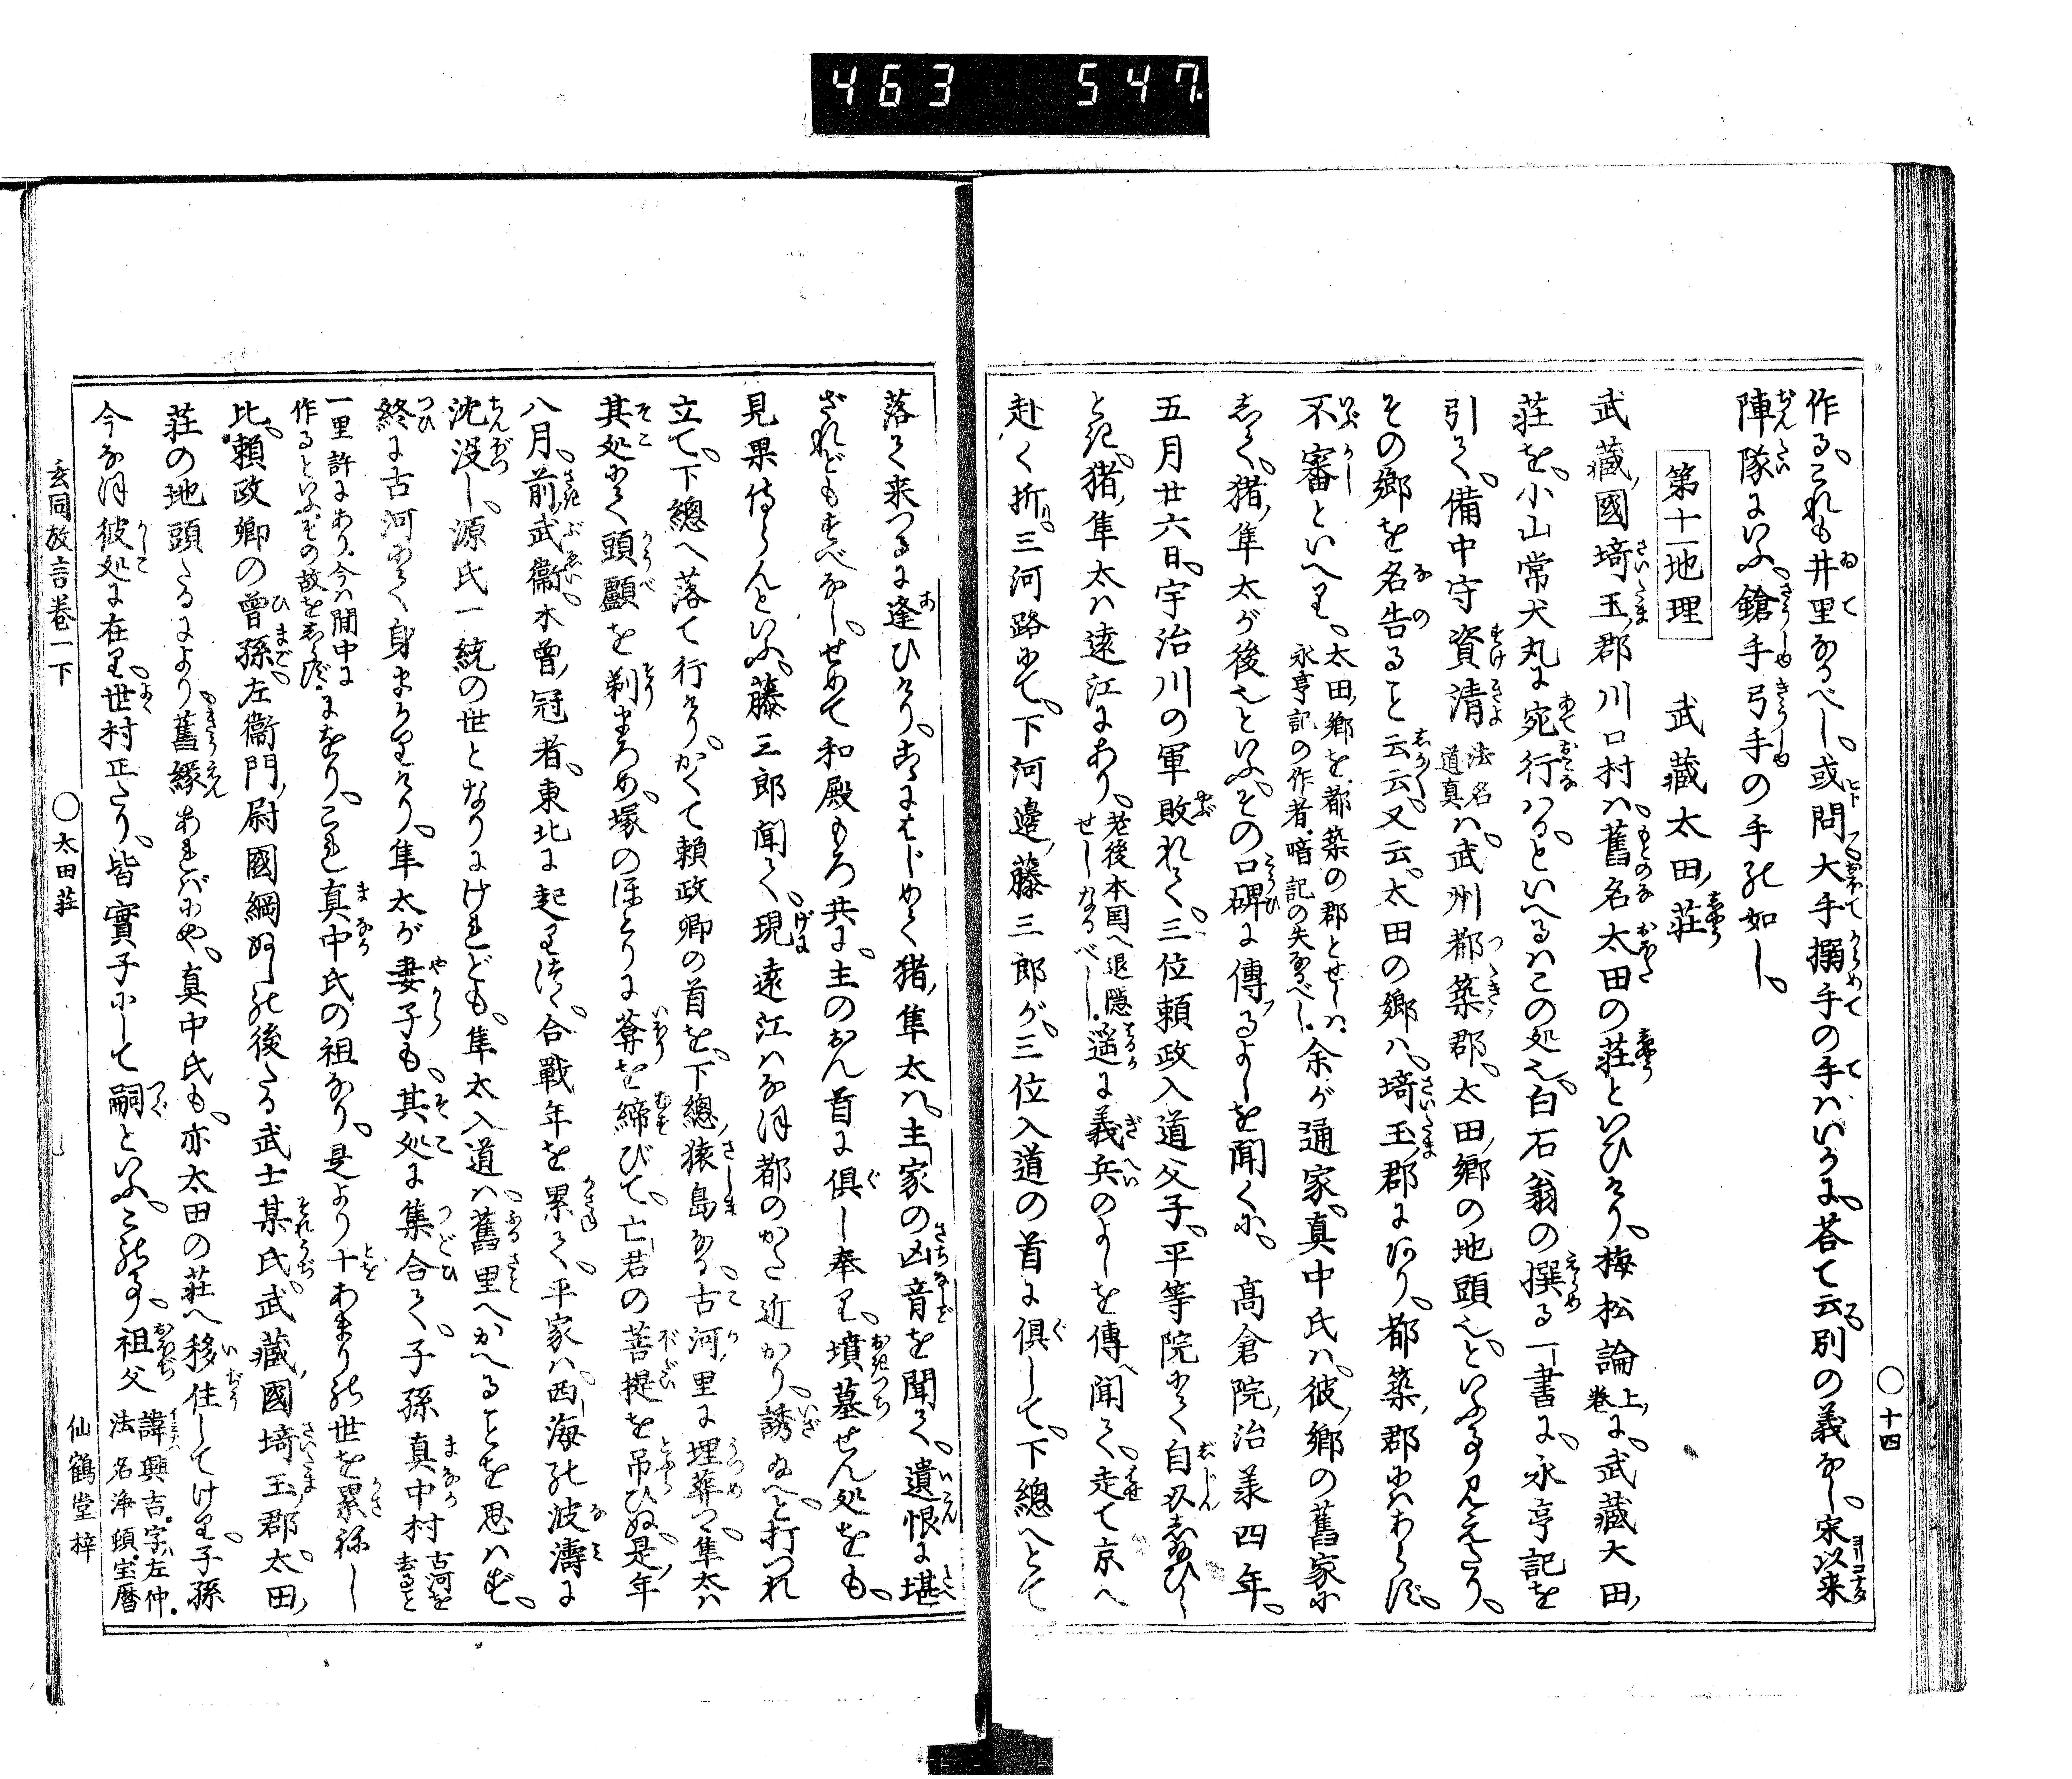 463 547.
作る。これも井里なるべし。或問大手搦手の手はいかに。荅て云別の義なし。宋以来
陣隊にいふ。鎗手弓手の手の如し。
第十一地理 武藏太田荘
武藏國埼玉郡川口村は。舊名太田の荘といひけり。梅松論上巻に。武藏大田
荘を。小山常犬丸に宛行はる。といへるはこの処也。白石翁の撰る一書に。永亨記を
引て。備中守資清法名道真は。武州都築郡。太田郷の地頭也。といふ事見えたり。
その郷を名告ること云云。又云。太田の郷は。埼玉郡にあり。都築郡にはあらず。
不審といへり。太田郷を。都築の郡とせしは。永亨記の作者。暗記の失なるべし。余が通家。真中氏は。彼郷の舊家に
して。猪隼太が後也といふ。その口碑に傳るよしを聞くに。高倉院治羕四年。
五月廿六日。宇治川の軍敗れて。三位頼政入道父子。平等院にて自殺し給ひし
とき。猪隼太は遠江にあり。老後本国へ退隠せしなるべし。遥に義兵のよしを傳へ聞て。走て京へ
赴く折。三河路にて。下河邊藤三郎が。三位入道の首に倶して。下總へとて
落て来つるに逢ひけり。こゝにはじめて猪隼太は。主家の凶音を聞て。遺恨に堪
ざれどもすべなし。せめて和殿もろ共に。主のおん首に倶し奉り。墳墓せん処をも。
見果侍らんといふ。藤三郎聞て。現遠江はなほ都のかた近かり。誘給へと打つれ
立て。下總へ落て行けり。かくて頼政卿の首を。下總猿島なる。古河里に埋葬つ。隼太は
其処にて頭顱を剃まろめ。塚のほとりに菴を締びて。亡君の菩提を吊ひぬ。是年
八月。前武衞。木曾冠者。東北に起りつゝ。合戰年を累て。平家は。西海の波濤に
沈没し。源氏一統の世となりにけれども。隼太入道は。舊里へかへることを思はず。
終に古河にて身まかりけり。隼太が妻子も。其処に集合て。子孫真中村古河を去ること
一里許にあり。今は間中に作るといふ。その故をしらず。にをり。これ真中氏の祖なり。是より十あまりの世を累祢し
比。頼政卿の曾孫。左衞門尉國綱ぬしの後たる武士某氏。武藏國埼玉郡太田
荘の地頭たるにより。舊縁あればにや。真中氏も。亦太田の荘へ移住してけり。子孫
今なほ彼処に在り。世村正たり。皆實子にして嗣といふ。この事。祖父諱興吉。字左仲。法名浄頓。宝暦
十四
玄同放言巻一下 ○太田荘 仙鶴堂梓